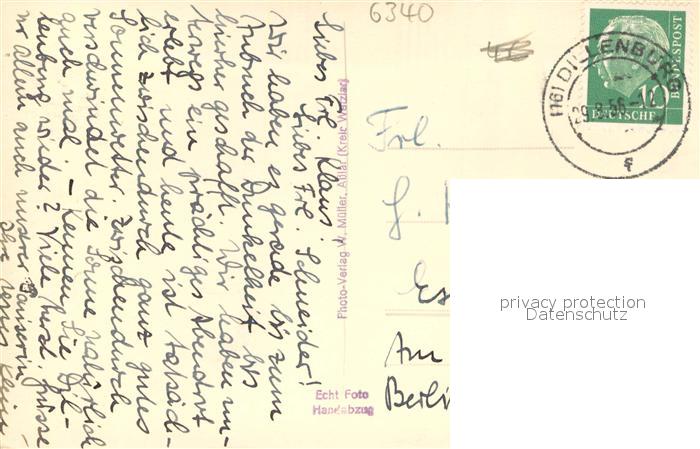 6340
Liebe Frl. Klaus!
Liebes Frl. Schneider!
Wir haben es gerade bis zum
Anbruch der Dunkelheit bis
hierher geschafft. Wir haben un-
terwegs ein prächtiges Abendrot
erlebt und heute ist tatsäch-
lich zwischendurch ganz gutes
Sonnenwetter. Zwischendurch
verschwindet die Sonne natürlich
auch mal. - Kennen Sie Dil-
lenburg wieder? Viele herzl. Grüsse
vor allem auch unserer
Ihre
Photo-Verlag W. Müller, Aßlar (Kreis Wetzlar)
Echt Foto
Handabzug
(16) DILLENBURG
29.8.56
f
10
DEUTSCHE
BUNDESPOST
Frl.
G.
Am
Berlin
privacy protection
Datenschutz